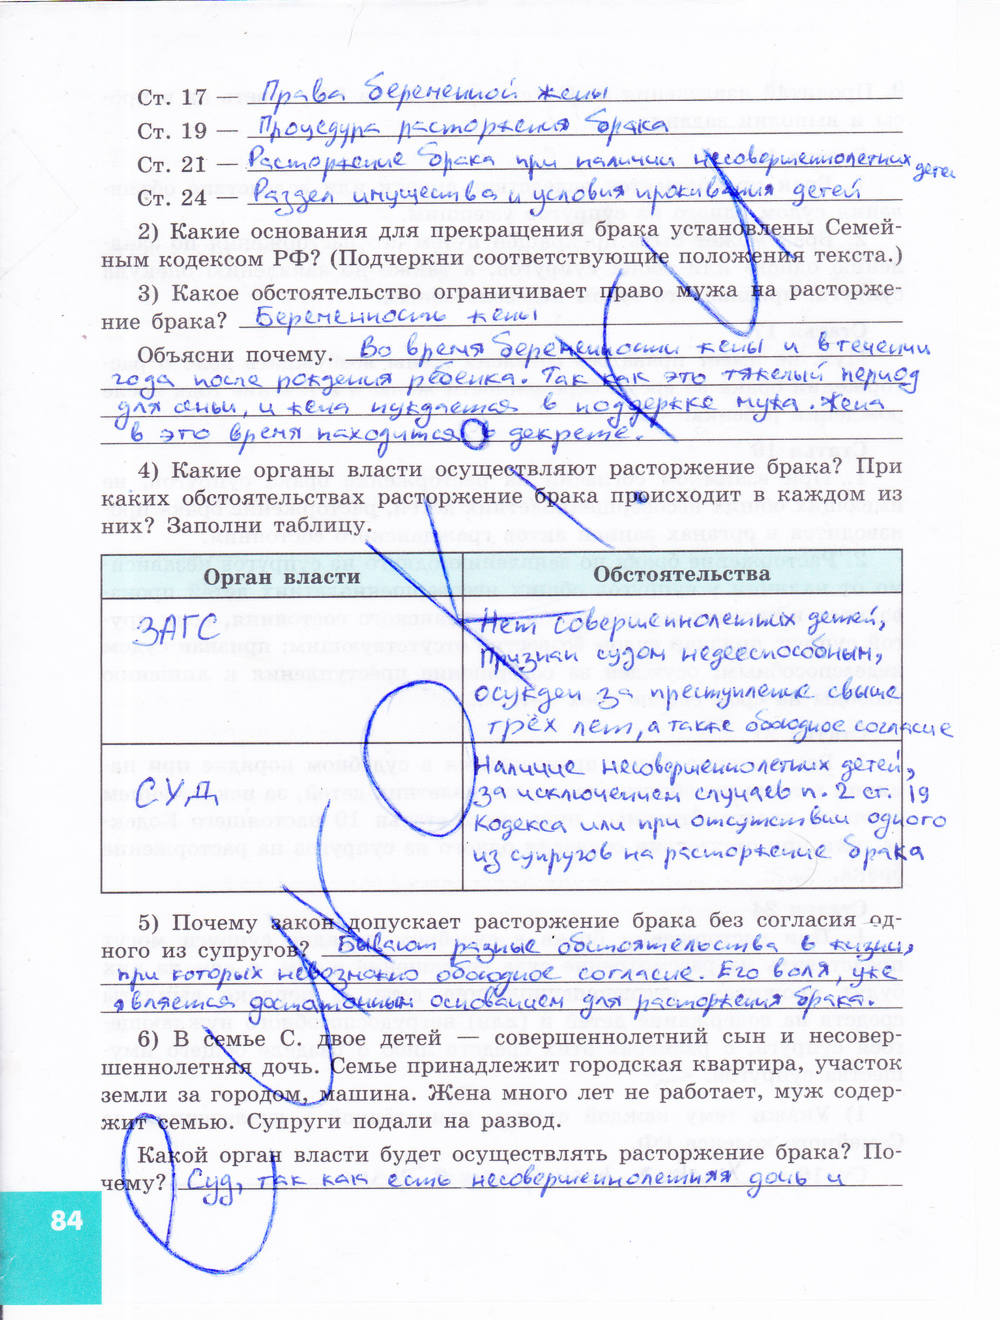 Ст. 17 — Права беременной жены
Ст. 19 — Процедура расторжения брака
Ст. 21 — Расторжение брака при наличии несовершеннолетних детей
Ст. 24 — Раздел имущества и условия проживания детей
2) Какие основания для прекращения брака установлены Семей-
ным кодексом РФ? (Подчеркни соответствующие положения текста.)
3) Какое обстоятельство ограничивает право мужа на расторже-
ние брака? Беременность жены
Объясни почему. Во время беременности жены и в течении
года после рождения ребёнка. Так как это тяжёлый период
для семьи, и жена нуждается в поддержке мужа. Жена
в это время находится в декрете.
4) Какие органы власти осуществляют расторжение брака? При
каких обстоятельствах расторжение брака происходит в каждом из
них? Заполни таблицу.
Орган власти Обстоятельства
ЗАГС Нет совершеннолетних детей,
признан судом недееспособным,
осужден за преступление свыше
трёх лет, а также обоюдное согласие
СУД Наличие несовершеннолетних детей,
за исключением случаев п. 2 ст. 19
Кодекса или при отсутствии одного
из супругов на расторжение брака
5) Почему закон допускает расторжение брака без согласия од-
ного из супругов? Бывают разные обстоятельства в жизни,
при которых невозможно обоюдное согласие. Его воля, уже
является достаточным основанием для расторжения брака.
6) В семье С. двое детей — совершеннолетний сын и несовер-
шеннолетняя дочь. Семье принадлежит городская квартира, участок
земли за городом, машина. Жена много лет не работает, муж содер-
жит семью. Супруги подали на развод.
Какой орган власти будет осуществлять расторжение брака? По-
чему? Суд, так как есть несовершеннолетняя дочь и
84